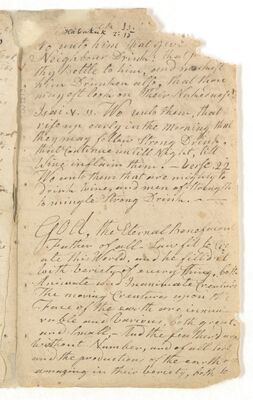 Habakuk 2:15
Wo unto him that give
Neighbour Drink, that
thy Bottle to him, and makest
him Drunken also, that thou
mayest look on their Nakedness
Isai 5. 11. Wo unto them, that
rise up early in the morning that
they may follow Strong Drink,
that Continue until Night, till
Wine inflam them. — Vers. 22
Wo unto them that are mighty to
Drink Wine, and men of Strength
to mingle Strong Drink. —
GOD, the Eternal
Father of all. Saw fit to Cre
ate this World, and he filled it
with Variety of every thing, both
Animate and Inanimate Creatures
The moving Creatures upon the
Face of the Earth are innum
erable and Various, both great
and Small, And the
without Number, and of all
and the productions of the earth
amazing in their Variety, both